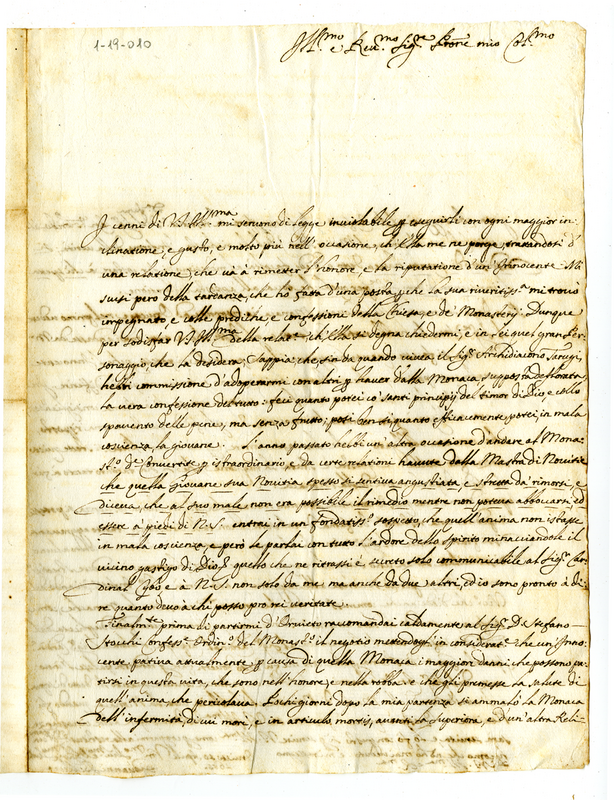 1-19-010
Ill.mo e Reu.mo Sig.re Prone mio Col.mo
I cenni di V.S. Ill.ma mi seruono di legge inuiolabile p eseguirli con ogni maggior in-
clinatione, e gusto, e molto più nell' occasione, ch'Ella me ne porge, trattandosi d'
una relatione, che uà à rimetter l'honore, e la riputatione d'un Innocente. Mi
scusi però della tardanza, che hò fatta d'una posta, p che la sua riueritiss.a mi trouò
impegnato, e colle prediche, e confessioni della Chiesa, e de' Monasterij. Dunque
per sodisfar V.S. Ill.ma della relat.e ch'Ella si degna chiedermi, e in lei quel gran Per-
sonaggio, che la desidera, Sappia, che, sin da quando uiueua il Sig.r Archidiacono
hebbi commissione d'adoperarmi con altri p hauer dalla Monaca, supposta deflorata
la uera confessione del tutto: feci quanto potei co' santi principij del timor di Dio, e collo
spauento delle pene, ma senza frutto, potei ben sì quanto efficacemente, potei, in mala
coscienza la giouane. L'anno passato hebbi un' altra occasione d'andare al Mona-
st.o d.e Conuertite p istraordinario, e da certe relationi hauute dalla Mastra di Nouitie
che quella giouane sua Nouitia spesso si sentiua angustiata, e stretta da' rimorsi, e
diceua che al suo male non era possibile il rimedio mentre non poteua abboccarsi, ed
essere a' piedi di N.S. entrai in un' fondatiss.o sospetto, che quell' anima non istasse
in mala coscienza, e però le parlai con tutto l'ardore dello spirito minacciandole il
uicino gastigo di Dio, quello che ne ritrassi è secreto solo communicabile al Sig.r Car-
dinal e à N.S. non solo da me, ma anche da due altri, ed io sono pronto à di-
re quanto deuo a che posso pro rei ueritate.
Finalm.te prima di partirmi d'Oruieto raccomandai caldamente al Sig.r D. Stefano
Stocchi Confess.e Ordin.o del Monast.o il negotio mettendogli in considerat.e che un' Inno-
cente, patiua attualmente, p causa di quella Monaca i maggiori danni che possono pa-
tirsi in questa uita, che sono nell' honore, e nella robba e che gli premesse la salute di
quell' anima che pericolaua. Pochi giorni dopo la mia partenza si ammalò la Monaca
dell' infermità, di cui morì, e in articulo mortis, auanti la Superiora, e d'un'altra Reli-